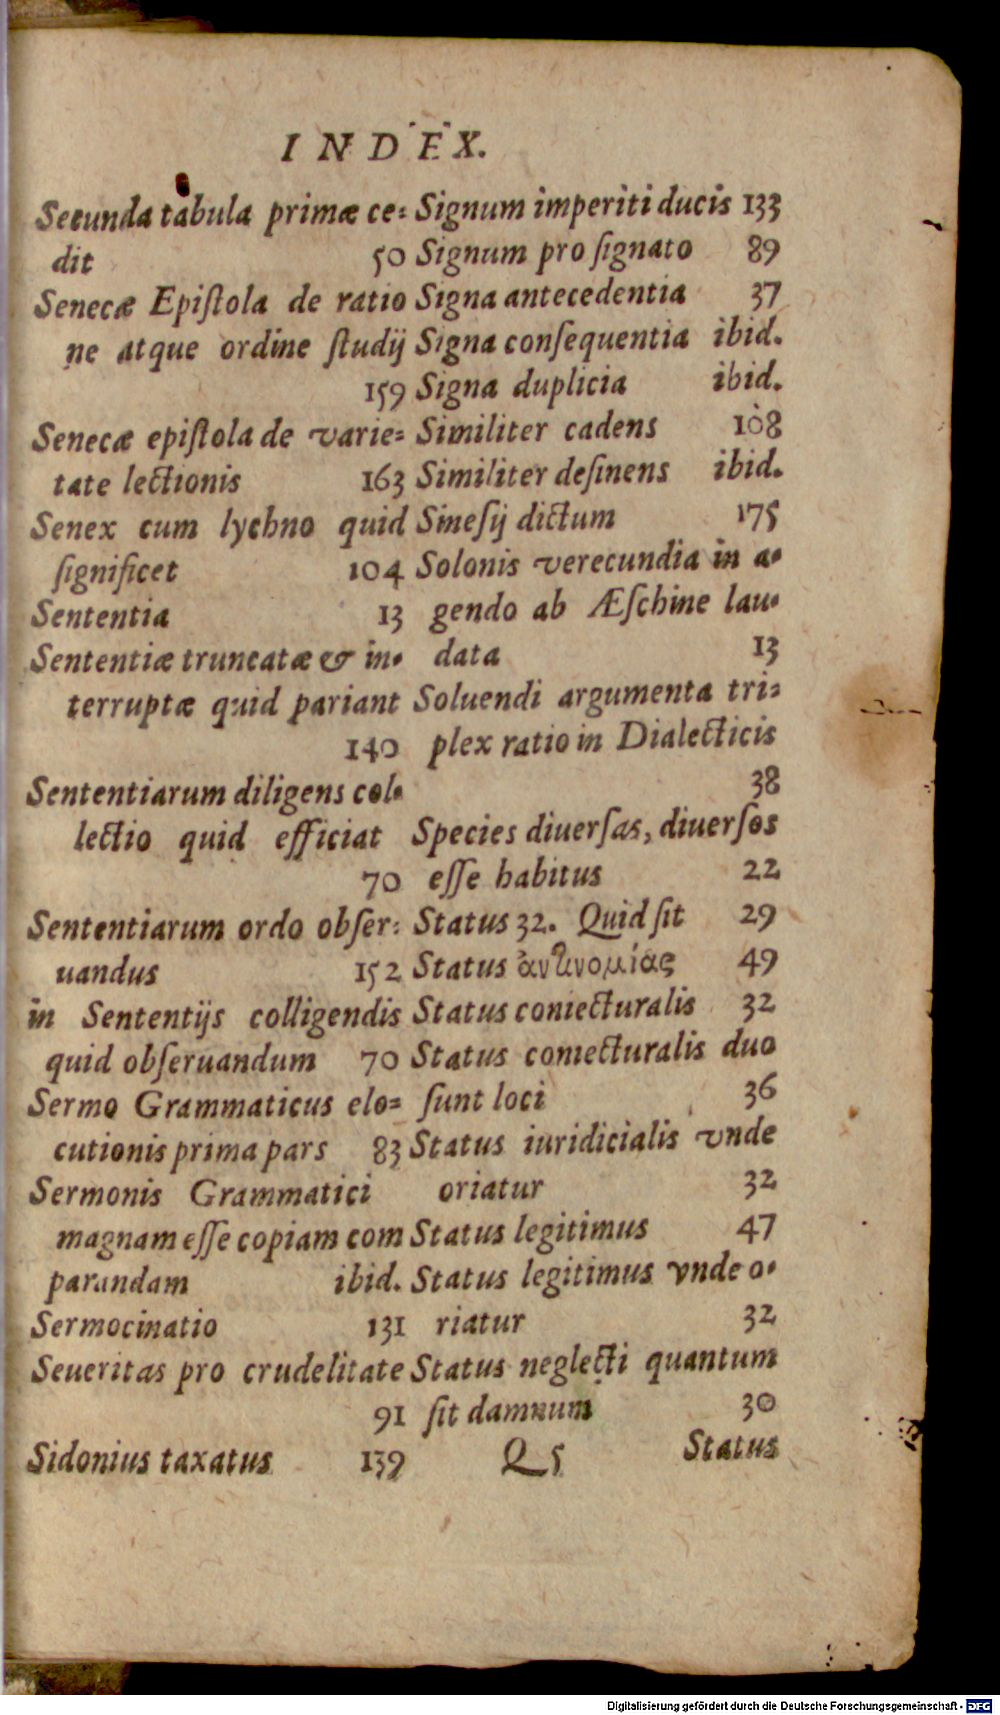 INDEX.
Secunda tabula primæ ce=
dit 50
Senecæ Epiſtola de ratio
ne atque ordine ſtudij
159
Senecæ epiſtola de varie=
tate lectionis 163
Senex cum lychno quid
ſignificet 104
Sententia 13
Sententiæ truncatæ & in-
terruptæ quid pariant
140
Sententiarum diligens col-
lectio quid efficiat
70
Sententiarum ordo obſer=
uandus 152
in Sententijs colligendis
quid obſeruandum 70
Sermo Grammaticus elo=
cutionis prima pars 83
Sermonis Grammatici
magnam eſſe copiam com
parandam ibid.
Sermocinatio 131
Seueritas pro crudelitate
91
Sidonius taxatus 139
Signum imperiti ducis 133
Signum pro ſignato 89
Signa antecedentia 37
Signa conſequentia ibid.
Signa duplicia ibid.
Similiter cadens 108
Similiter deſinens ibid.
Sineſij dictum 175
Solonis verecundia in a-
gendo ab Æſchine lau-
data 13
Soluendi argumenta tri=
plex ratio in Dialecticis
38
Species diuerſas, diuerſos
eſſe habitus 22
Status 32. Quid ſit 29
Status ἀντινομίας 49
Status coniecturalis 32
Status coniecturalis duo
ſunt loci 36
Status iuridicialis vnde
oriatur 32
Status legitimus 47
Status legitimus vnde o-
riatur 32
Status neglecti quantum
ſit damnum 30
Q 5 Status
Digitalisierung gefördert durch die Deutsche Forschungsgemeinschaft - DFG